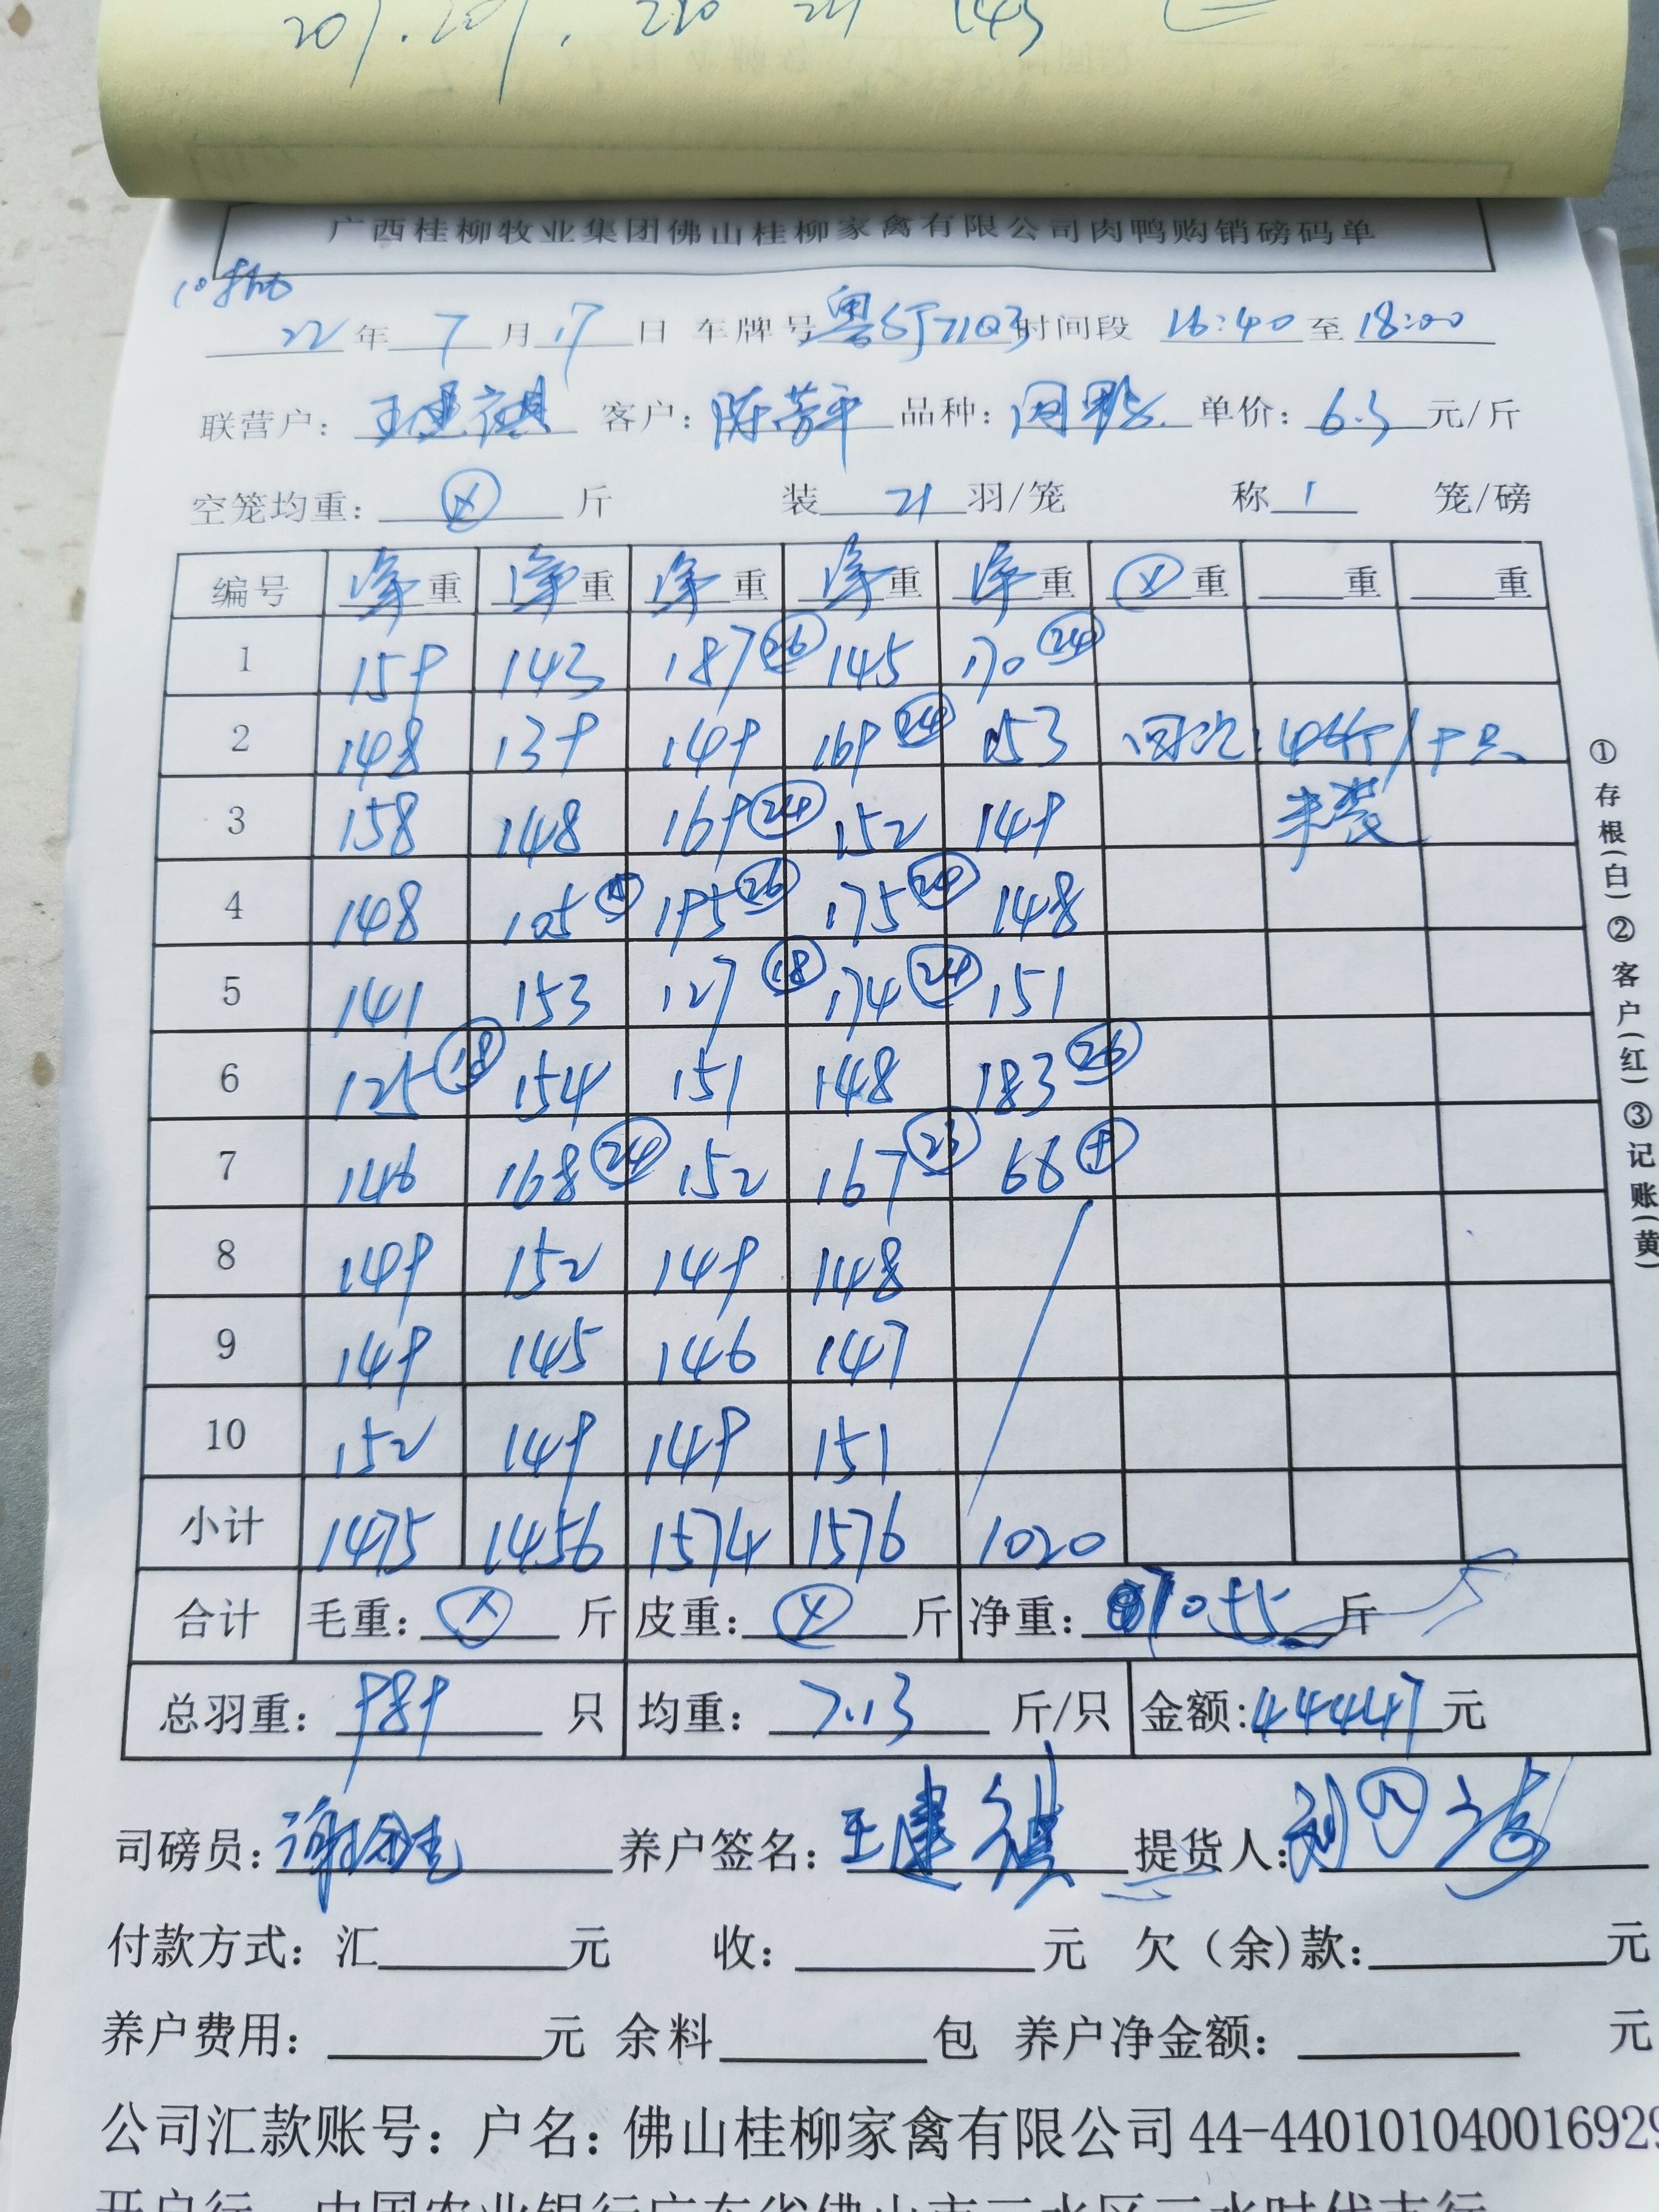 201.201. 210 21 145
广西桂柳牧业集团佛山桂柳家禽有限公司肉鸭购销磅码单
22年7月17日 车牌号 时间段 16:40至18:00
联营户: 王建祺 客户: 陈芳平 品种: 单价: 6.3元/斤
空笼均重: ⊗ 斤 装 21 羽/笼 称 1 笼/磅
编号 净重 净重 净重 净重 净重 ⊗重 重 重
1 159 143 187 26 145 170 24
2 148 139 149 169 24 153 4斤/千只
3 158 148 169 24 152 149 未装
4 148 105 195 26 175 148
5 141 153 127 18 174 24 151
6 125 18 154 151 148 183 26
7 146 168 24 152 167 23 66 9
8 149 152 149 148
9 149 145 146 147
10 152 149 149 151
小计 1475 1456 1574 1576 1020
合计 毛重: ⊗ 斤 皮重: ⊗ 斤 净重: 7055 斤
总羽重: 989 只 均重: 7.13 斤/只 金额: 44447 元
司磅员: 养户签名: 王建祺 提货人:
付款方式: 汇 元 收: 元 欠(余)款: 元
养户费用: 元 余料 包 养户净金额: 元
公司汇款账号: 户名: 佛山桂柳家禽有限公司 44-44010104001692
①存根(白)②客户(红)③记账(黄)